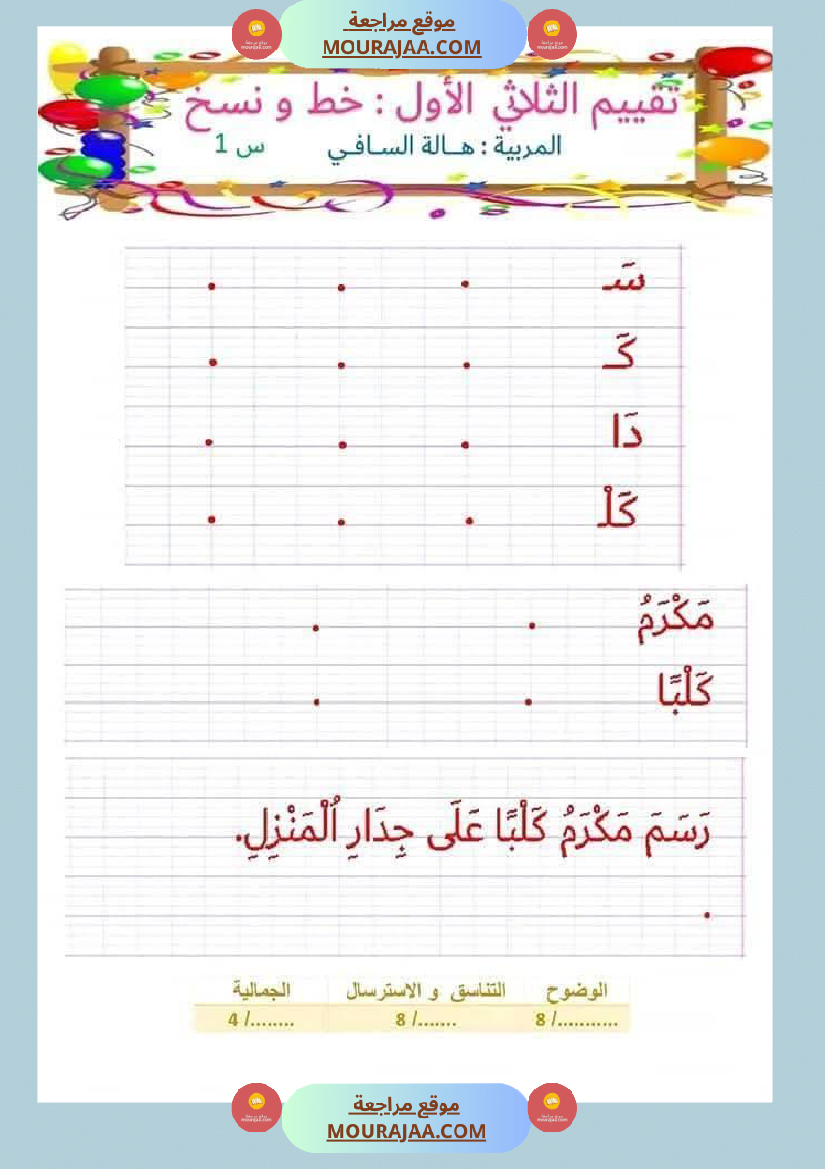 موقع مراجعة
MOURAJAA.COM
تقييم الثلاثي الأول : خط و نسخ
المربية : هــالة السـافـي س 1
سَـ
كَـ
دَا
كَلْـ
مَكْرَمُ
كَلْبًا
رَسَمَ مَكْرَمُ كَلْبًا عَلَى جِدَارِ اُلْمَنْزِلِ.
الوضوح التناسق و الاسترسال الجمالية
8 /........... 8 /....... 4 /........
موقع مراجعة
MOURAJAA.COM